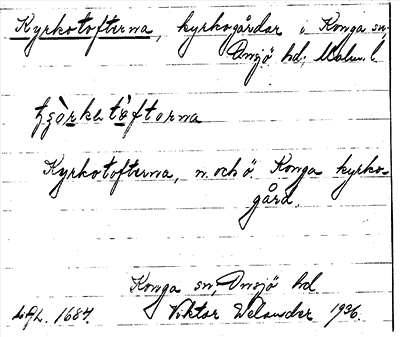 Kyrkotofterna, kyrkogårdar i Konga sn,
Onsjö hd; Malm. l.
Kyrkotofterna, n. och ö. Konga kyrko-
gård.
Konga sn, Onsjö hd
Viktor Welander 1936.
1687.